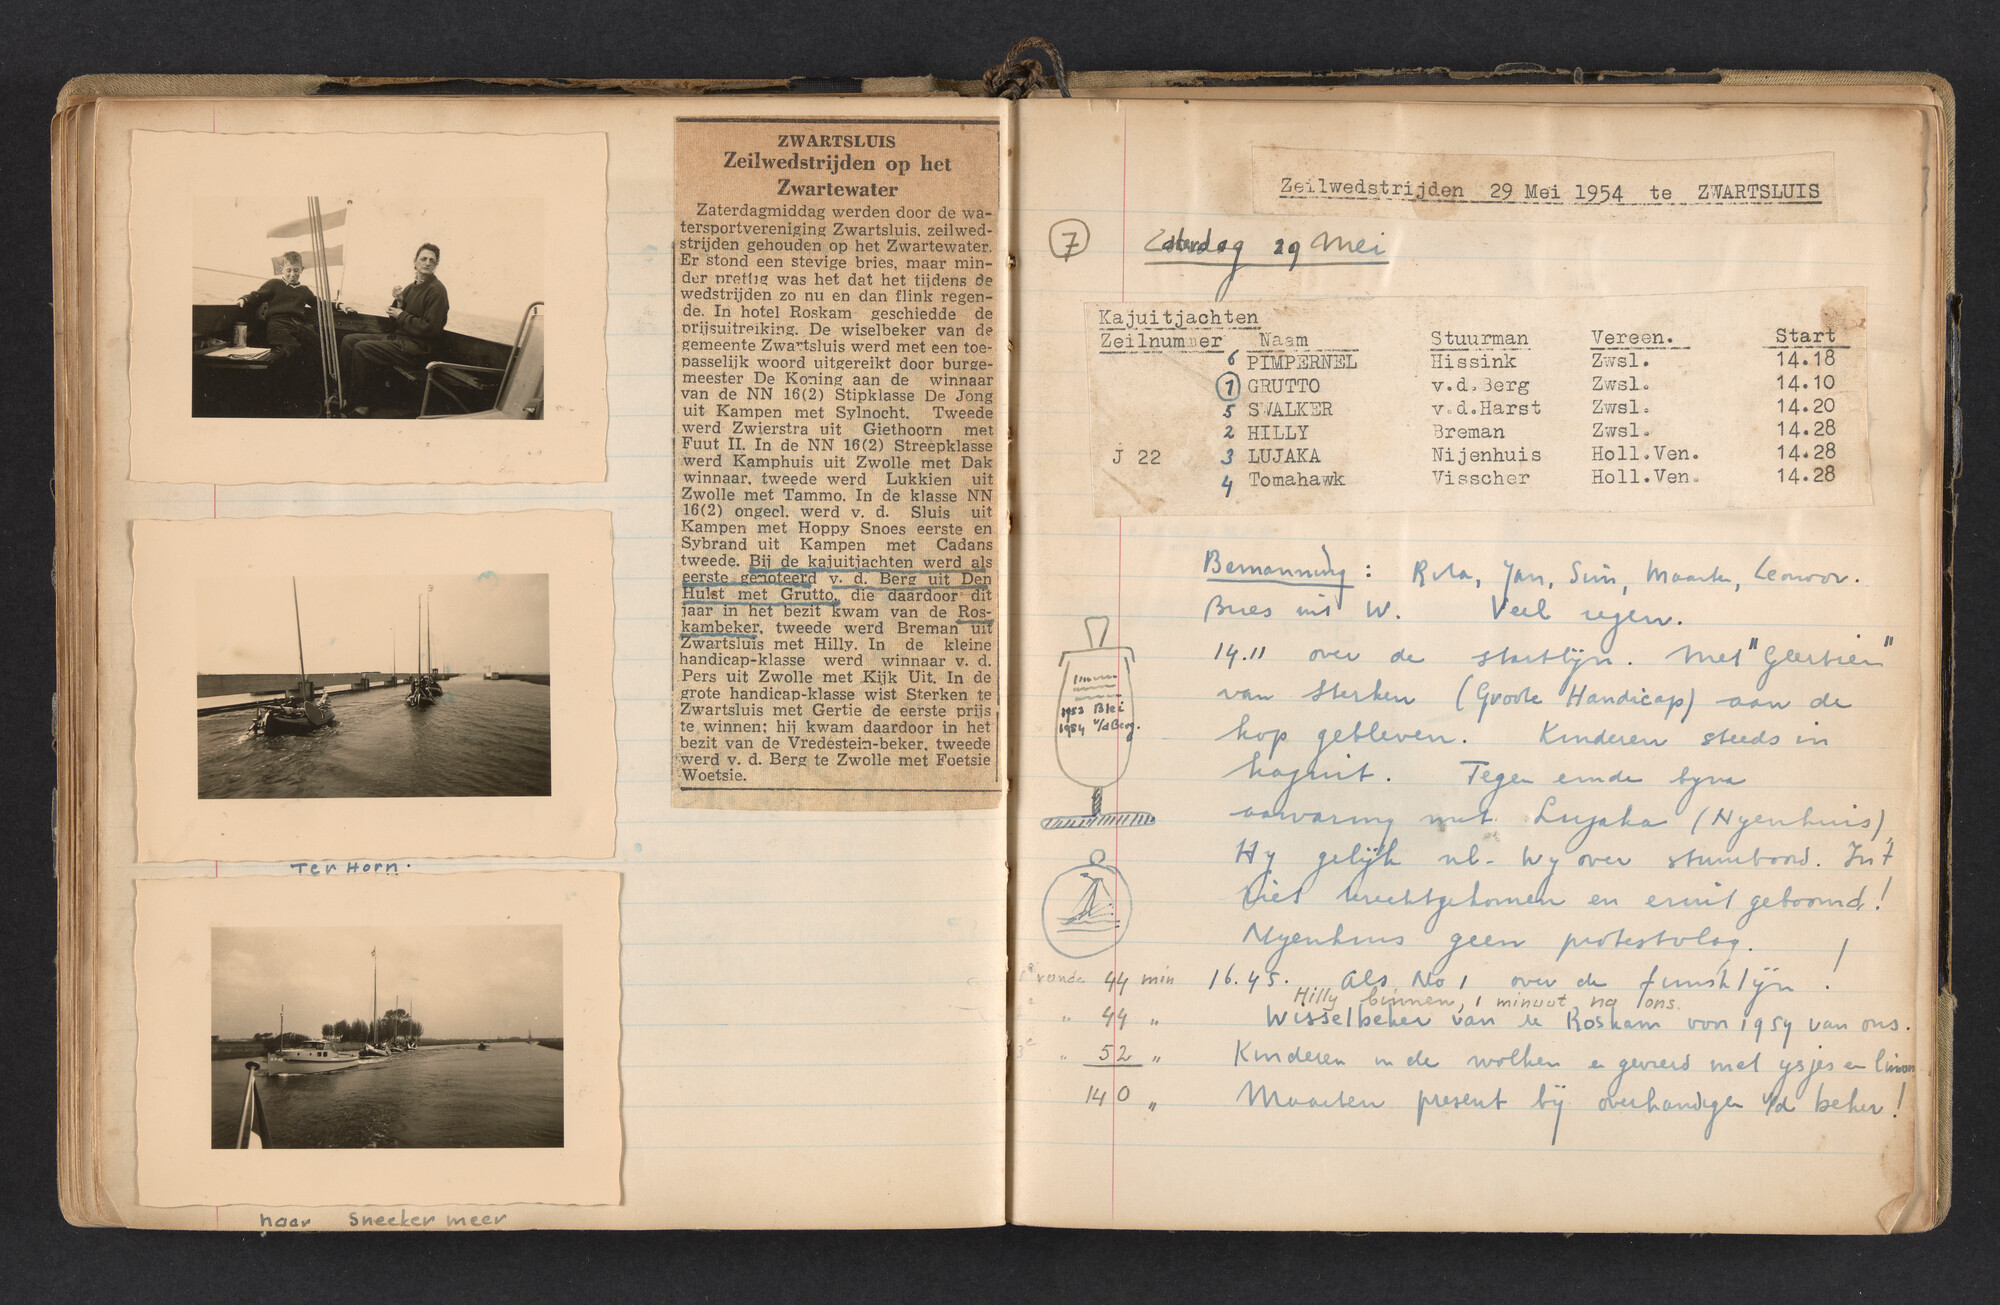 ZWARTSLUIS
Zeilwedstrijden op het
Zwartewater
Zaterdagmiddag werden door de wa-
tersportvereniging Zwartsluis, zeilwed-
strijden gehouden op het Zwartewater.
Er stond een stevige bries, maar min-
der prettig was het dat het tijdens de
wedstrijden zo nu en dan flink regen-
de. In hotel Roskam geschiedde de
prijsuitreiking. De wiselbeker van de
gemeente Zwartsluis werd met een toe-
passelijk woord uitgereikt door burge-
meester De Koning aan de winnaar
van de NN 16(2) Stipklasse De Jong
uit Kampen met Sylnocht. Tweede
werd Zwierstra uit Giethoorn met
Fuut II. In de NN 16(2) Streepklasse
werd Kamphuis uit Zwolle met Dak
winnaar, tweede werd Lukkien uit
Zwolle met Tammo. In de klasse NN
16(2) ongecl. werd v. d. Sluis uit
Kampen met Hoppy Snoes eerste en
Sybrand uit Kampen met Cadans
tweede. Bij de kajuitjachten werd als
eerste genoteerd v. d. Berg uit Den
Hulst met Grutto, die daardoor dit
jaar in het bezit kwam van de Ros-
kambeker, tweede werd Breman uit
Zwartsluis met Hilly. In de kleine
handicap-klasse werd winnaar v. d.
Pers uit Zwolle met Kijk Uit. In de
grote handicap-klasse wist Sterken te
Zwartsluis met Gertie de eerste prijs
te winnen; hij kwam daardoor in het
bezit van de Vredestein-beker, tweede
werd v. d. Berg te Zwolle met Foetsie
Woetsie.
Ter Horn.
naar Sneekermeer
Zeilwedstrijden 29 Mei 1954 te ZWARTSLUIS
7 Zaterdag 29 Mei
Kajuitjachten
Zeilnummer Naam Stuurman Vereen. Start
6 PIMPERNEL Hissink Zwsl. 14.18
1 GRUTTO v.d.Berg Zwsl. 14.10
5 SWALKER v.d.Harst Zwsl. 14.20
2 HILLY Breman Zwsl. 14.28
J 22 3 LUJAKA Nijenhuis Holl.Ven. 14.28
4 Tomahawk Visscher Holl.Ven. 14.28
Bemanning: Rita, Jan, Siem, Maarten, Leonoor.
Bries uit W. Veel regen.
14.11 over de startlijn. Met "Geertien"
van Sterken (Groote Handicap) aan de
kop gebleven. Kinderen steeds in
kajuit. Tegen einde byna
aanvaring met Lujaka (Nyenhuis)
Hy gelijk nl. Wy over stuurboord. In 't
riet terechtgekomen en eruit geboomd!
Nyenhuis geen protestvlag.
16.45. Als No 1 over de finishlijn!
Hilly binnen, 1 minuut na ons.
Wisselbeker van de Roskam voor 1954 van ons.
Kinderen in de wolken en gevierd met ysjes en limon
Maarten present bij overhandigen v/d beker!
1953 Blei
1954 v/d Berg.
1e ronde 44 min
2e " 44 "
3e " 52 "
140 "